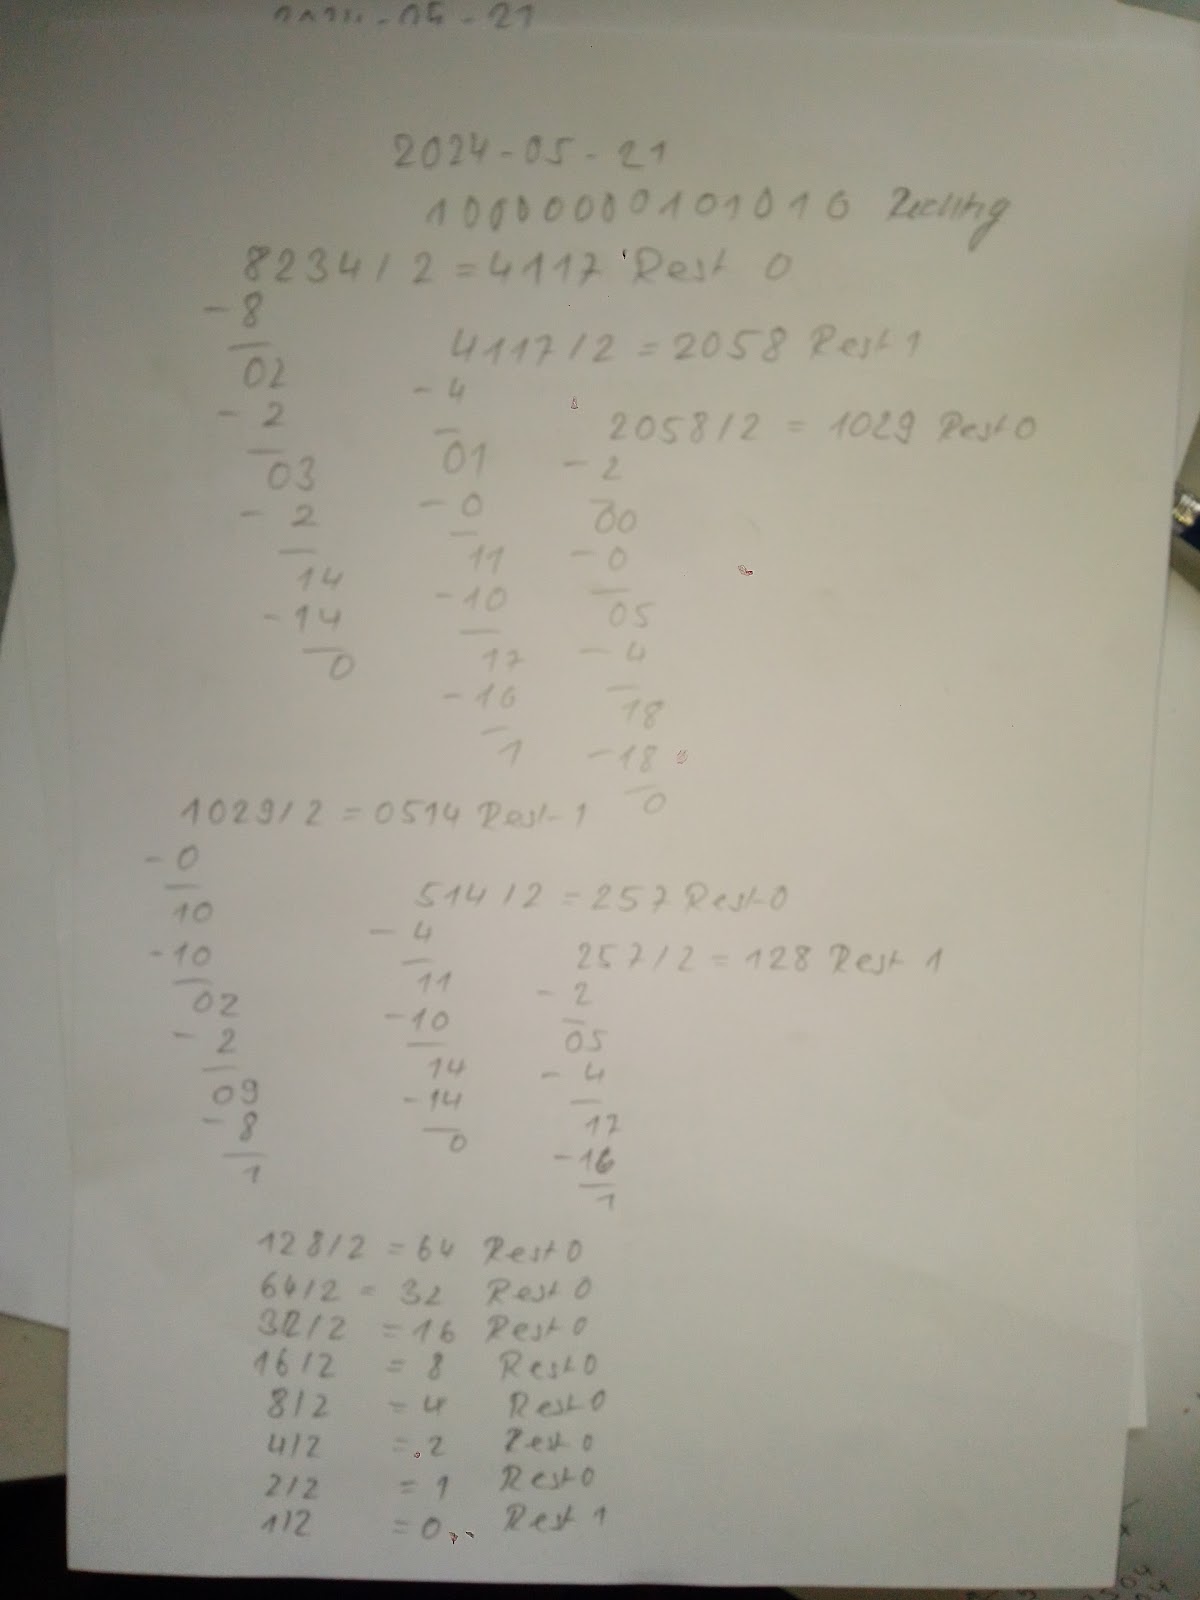 2024-05-21
2024-05-21
10000000101010 Richtig
8234/2 = 4117 Rest 0
-8
02
-2
03
-2
14
-14
0
4117/2 = 2058 Rest 1
-4
01
-0
11
-10
17
-16
1
2058/2 = 1029 Rest 0
-2
00
-0
05
-4
18
-18
0
1029/2 = 0514 Rest 1
-0
10
-10
02
-2
09
-8
1
514/2 = 257 Rest 0
-4
11
-10
14
-14
0
257/2 = 128 Rest 1
-2
05
-4
17
-16
1
128/2 = 64 Rest 0
64/2 = 32 Rest 0
32/2 = 16 Rest 0
16/2 = 8 Rest 0
8/2 = 4 Rest 0
4/2 = 2 Rest 0
2/2 = 1 Rest 0
1/2 = 0 Rest 1